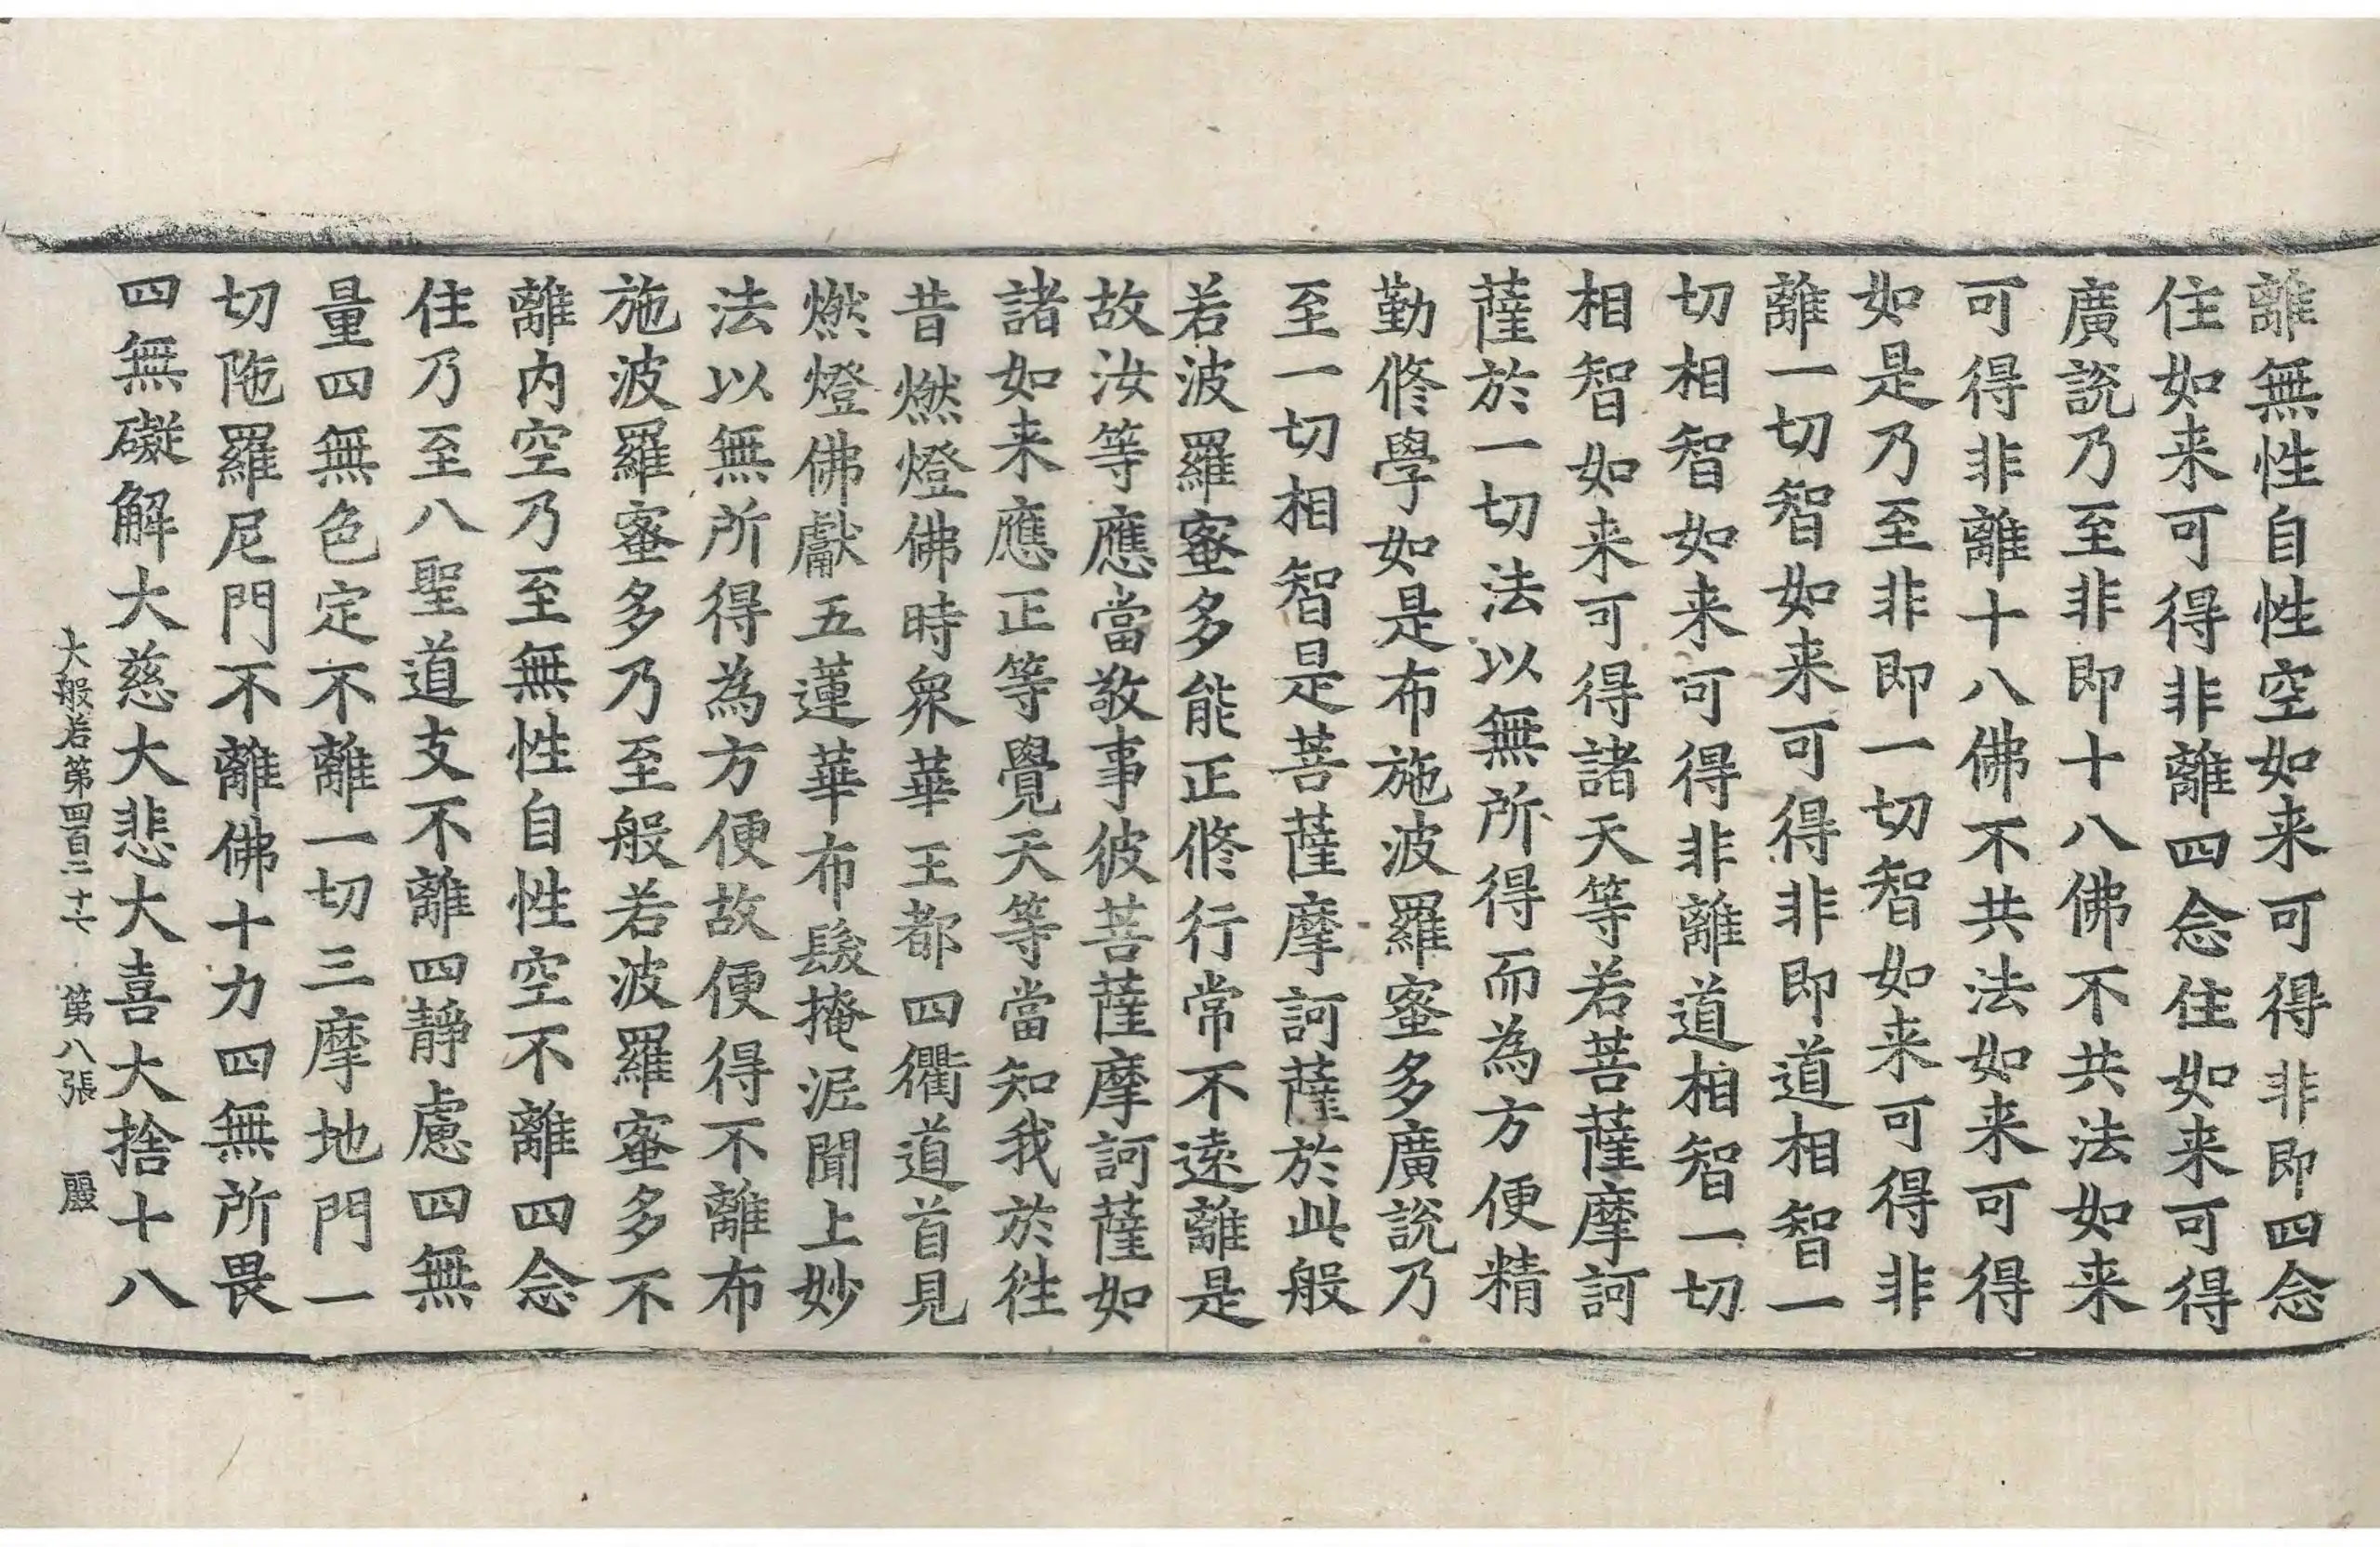 離無性自性空如来可得非即四念
住如来可得非離四念住如来可得
廣說乃至非即十八佛不共法如来
可得非離十八佛不共法如来可得
如是乃至非即一切智如来可得非
離一切智如来可得非即道相智一
切相智如来可得非離道相智一切
相智如来可得諸天等若菩薩摩訶
薩於一切法以無所得而為方便精
勤修學如是布施波羅蜜多廣說乃
至一切相智是菩薩摩訶薩於此般
若波羅蜜多能正修行常不遠離是
故汝等應當敬事彼菩薩摩訶薩如
諸如来應正等覺天等當知我於往
昔燃燈佛時衆華王都四衢道首見
燃燈佛獻五蓮華布髮掩泥聞上妙
法以無所得為方便故便得不離布
施波羅蜜多乃至般若波羅蜜多不
離内空乃至無性自性空不離四念
住乃至八聖道支不離四靜慮四無
量四無色定不離一切三摩地門一
切陁羅尼門不離佛十力四無所畏
四無礙解大慈大悲大喜大捨十八
大般若第四百二十七 第八張 嚴